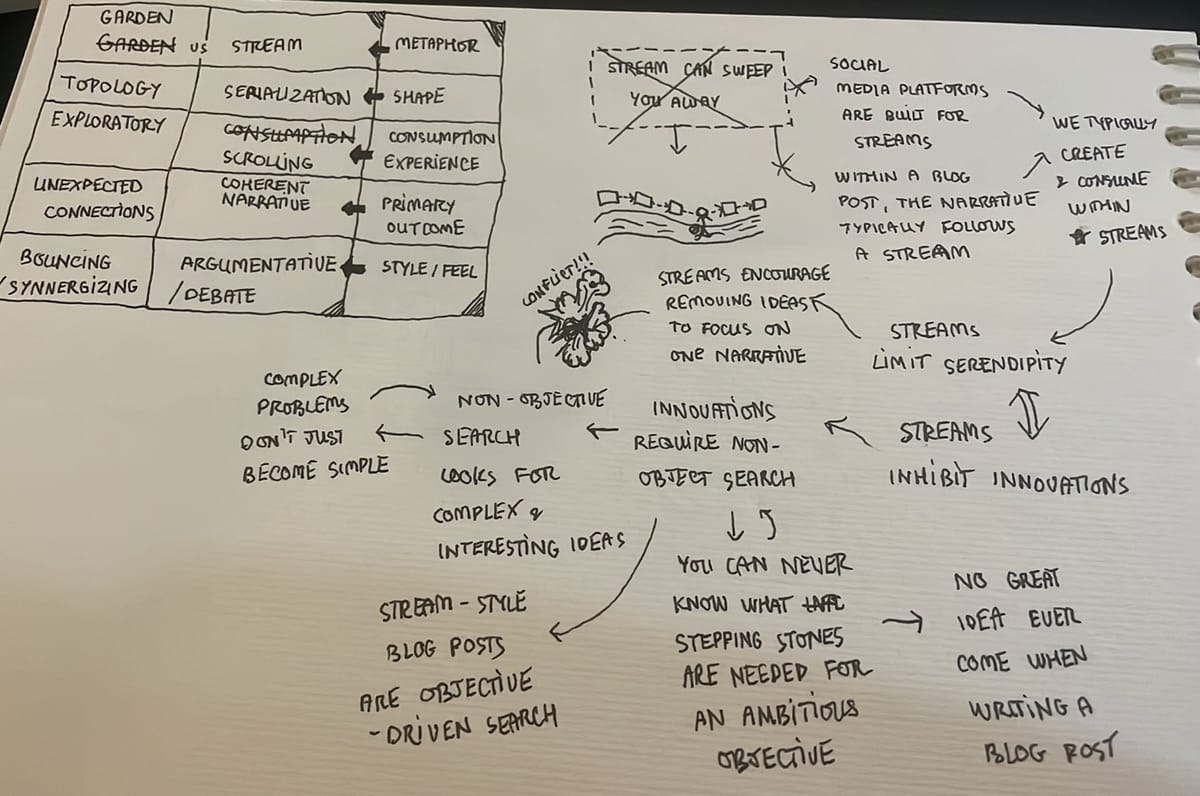 GARDEN
GARDEN VS STREAM METAPHOR
TOPOLOGY SERIALIZATION SHAPE
EXPLORATORY CONSUMPTION CONSUMPTION
SCROLLING EXPERIENCE
UNEXPECTED COHERENT PRIMARY
CONNECTIONS NARRATIVE OUTCOME
BOUNCING ARGUMENTATIVE STYLE/FEEL
/SYNNERGIZING /DEBATE
STREAM CAN SWEEP
YOU AWAY
SOCIAL
MEDIA PLATFORMS
ARE BUILT FOR
STREAMS
WITHIN A BLOG
POST, THE NARRATIVE
TYPICALLY FOLLOWS
A STREAM
WE TYPICALLY
CREATE
& CONSUME
WITHIN
STREAMS
CONFLICT!!!
STREAMS ENCOURAGE
REMOVING IDEAS
TO FOCUS ON
ONE NARRATIVE
STREAMS
LIMIT SERENDIPITY
COMPLEX
PROBLEMS
DON'T JUST
BECOME SIMPLE
NON-OBJECTIVE
SEARCH
LOOKS FOR
COMPLEX &
INTERESTING IDEAS
INNOVATIONS
REQUIRE NON-
OBJECT SEARCH
STREAMS
INHIBIT INNOVATIONS
STREAM-STYLE
BLOG POSTS
ARE OBJECTIVE
-DRIVEN SEARCH
YOU CAN NEVER
KNOW WHAT
STEPPING STONES
ARE NEEDED FOR
AN AMBITIOUS
OBJECTIVE
NO GREAT
IDEA EVER
COME WHEN
WRITING A
BLOG POST